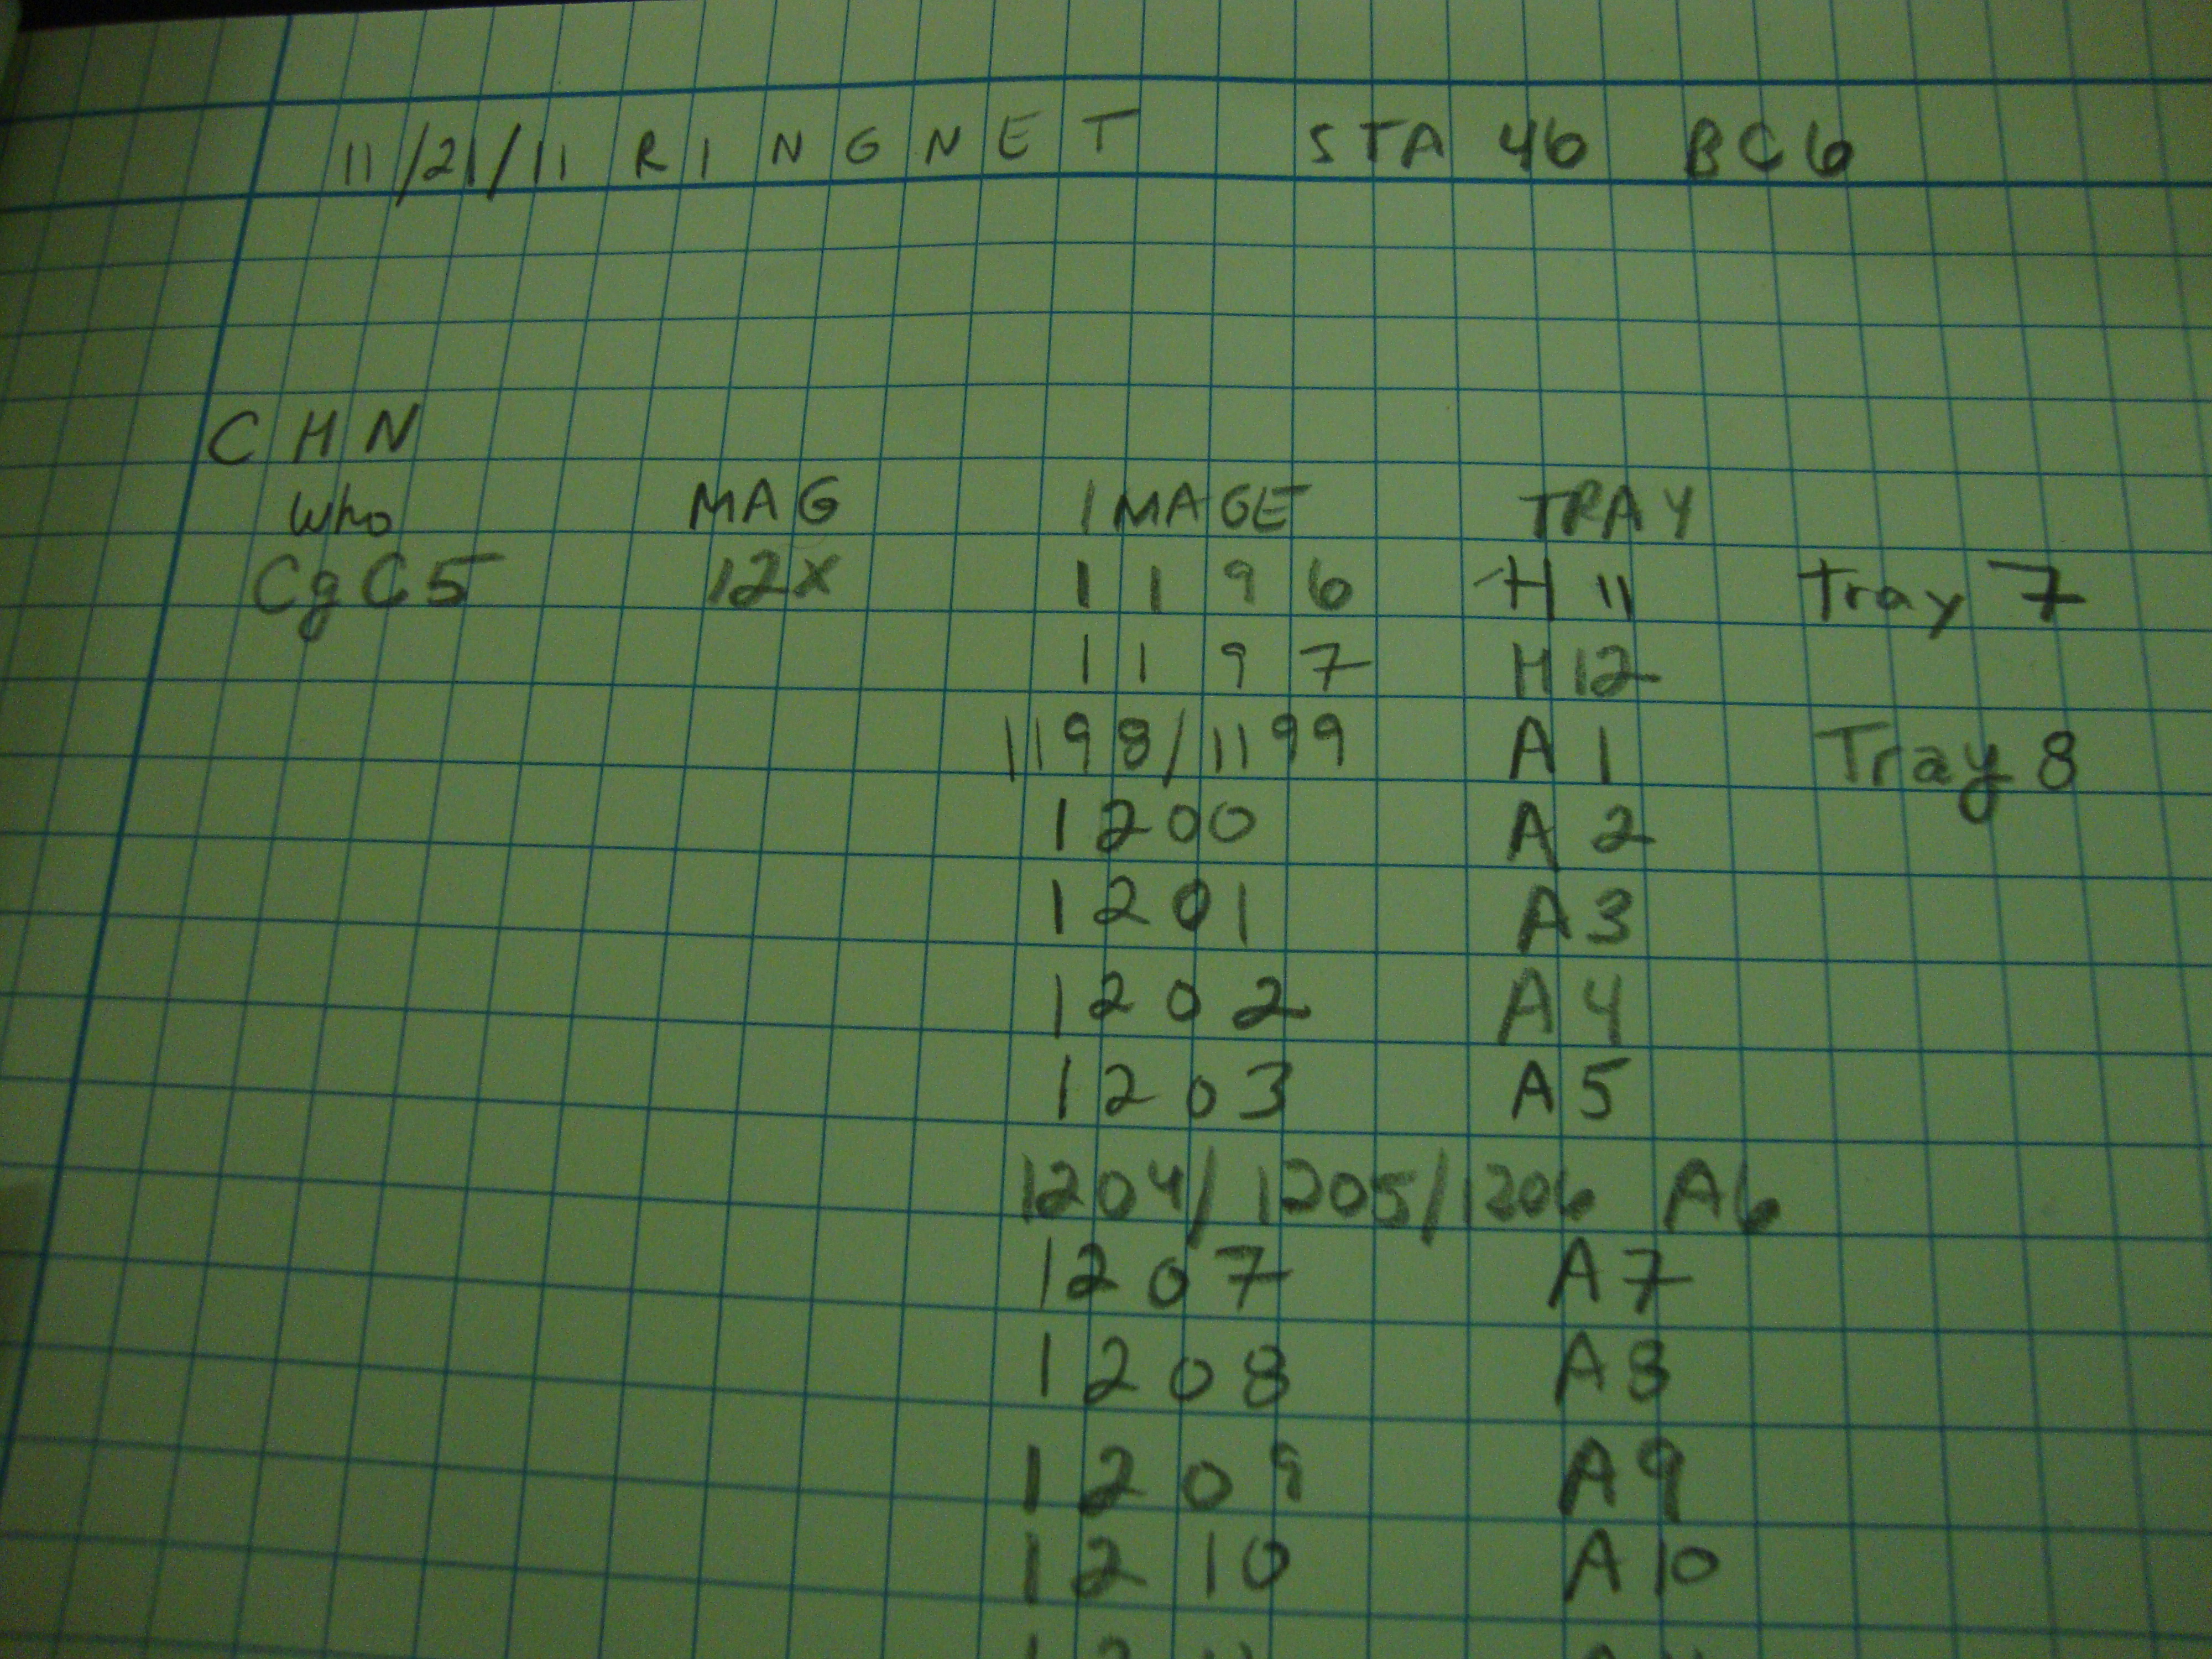 11/21/11 RINGNET STA 46 BC6
CHN
Who MAG IMAGE TRAY
CgC5 12x 1196 H11 Tray 7
1197 H12
1198/1199 A1 Tray 8
1200 A2
1201 A3
1202 A4
1203 A5
1204/1205/1206 A6
1207 A7
1208 A8
1209 A9
1210 A10